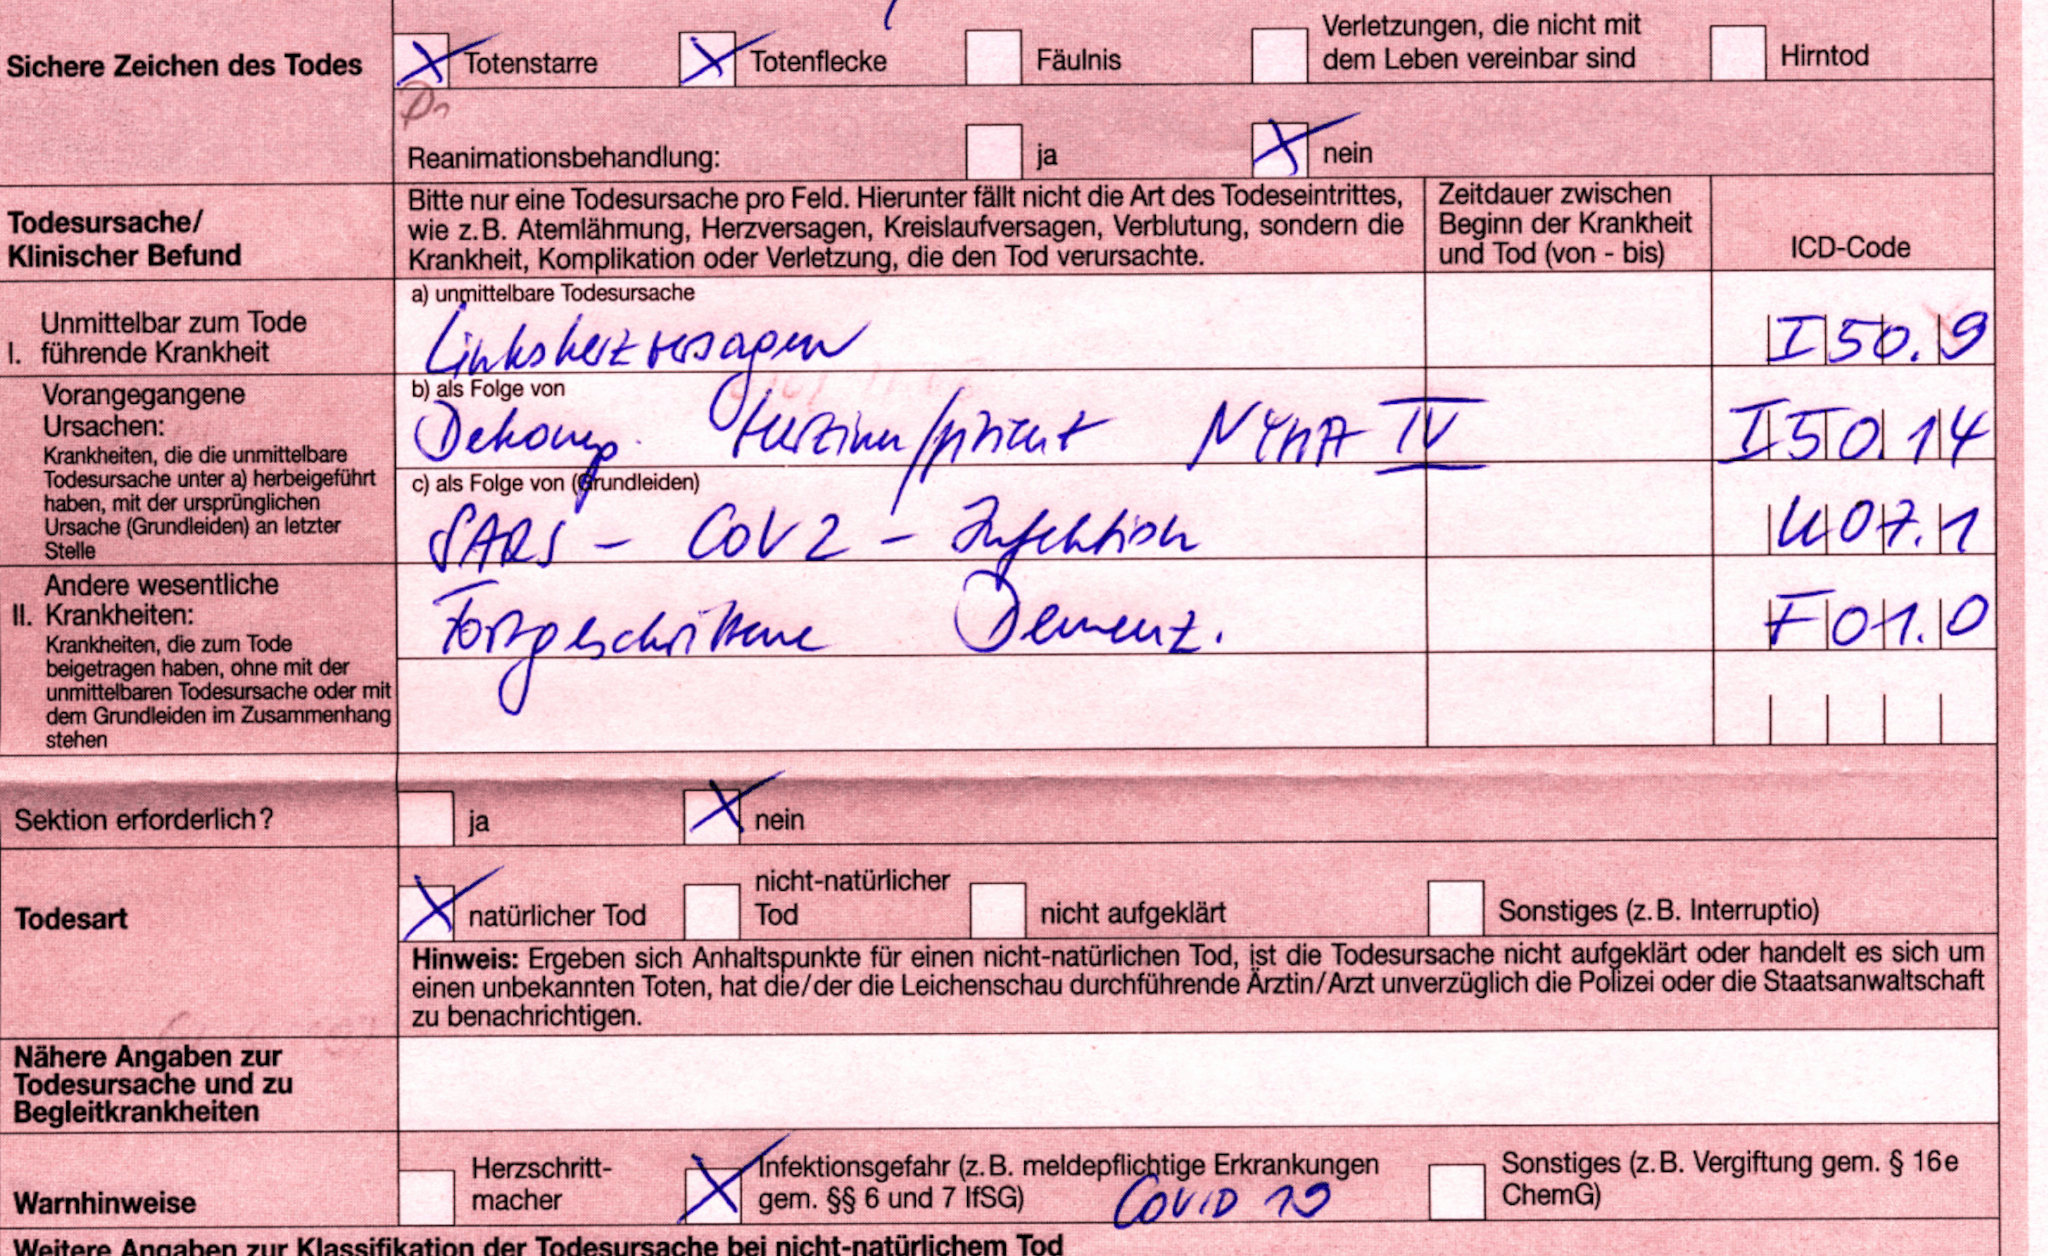 Sichere Zeichen des Todes
Totenstarre
Totenflecke
Fäulnis
Verletzungen, die nicht mit
dem Leben vereinbar sind
Hirntod
Reanimationsbehandlung:
ja
nein
Todesursache/
Klinischer Befund
Bitte nur eine Todesursache pro Feld. Hierunter fällt nicht die Art des Todeseintrittes,
wie z.B. Atemlähmung, Herzversagen, Kreislaufversagen, Verblutung, sondern die
Krankheit, Komplikation oder Verletzung, die den Tod verursachte.
Zeitdauer zwischen
Beginn der Krankheit
und Tod (von - bis)
ICD-Code
I. Unmittelbar zum Tode
führende Krankheit
a) unmittelbare Todesursache
Linksherzversagen
I50.9
Vorangegangene
Ursachen:
Krankheiten, die die unmittelbare
Todesursache unter a) herbeigeführt
haben, mit der ursprünglichen
Ursache (Grundleiden) an letzter
Stelle
b) als Folge von
Dekomp. NYHA IV
I50.14
c) als Folge von (Grundleiden)
SARS - CoV2 - Infektion
U07.1
II. Andere wesentliche
Krankheiten:
Krankheiten, die zum Tode
beigetragen haben, ohne mit der
unmittelbaren Todesursache oder mit
dem Grundleiden im Zusammenhang
stehen
Fortgeschrittene Demenz.
F01.0
Sektion erforderlich?
ja
nein
Todesart
natürlicher Tod
nicht-natürlicher
Tod
nicht aufgeklärt
Sonstiges (z.B. Interruptio)
Hinweis: Ergeben sich Anhaltspunkte für einen nicht-natürlichen Tod, ist die Todesursache nicht aufgeklärt oder handelt es sich um
einen unbekannten Toten, hat die/der die Leichenschau durchführende Ärztin/Arzt unverzüglich die Polizei oder die Staatsanwaltschaft
zu benachrichtigen.
Nähere Angaben zur
Todesursache und zu
Begleitkrankheiten
Warnhinweise
Herzschritt-
macher
Infektionsgefahr (z.B. meldepflichtige Erkrankungen
gem. §§ 6 und 7 IfSG)
COVID 19
Sonstiges (z.B. Vergiftung gem. § 16e
ChemG)
Weitere Angaben zur Klassifikation der Todesursache bei nicht-natürlichem Tod